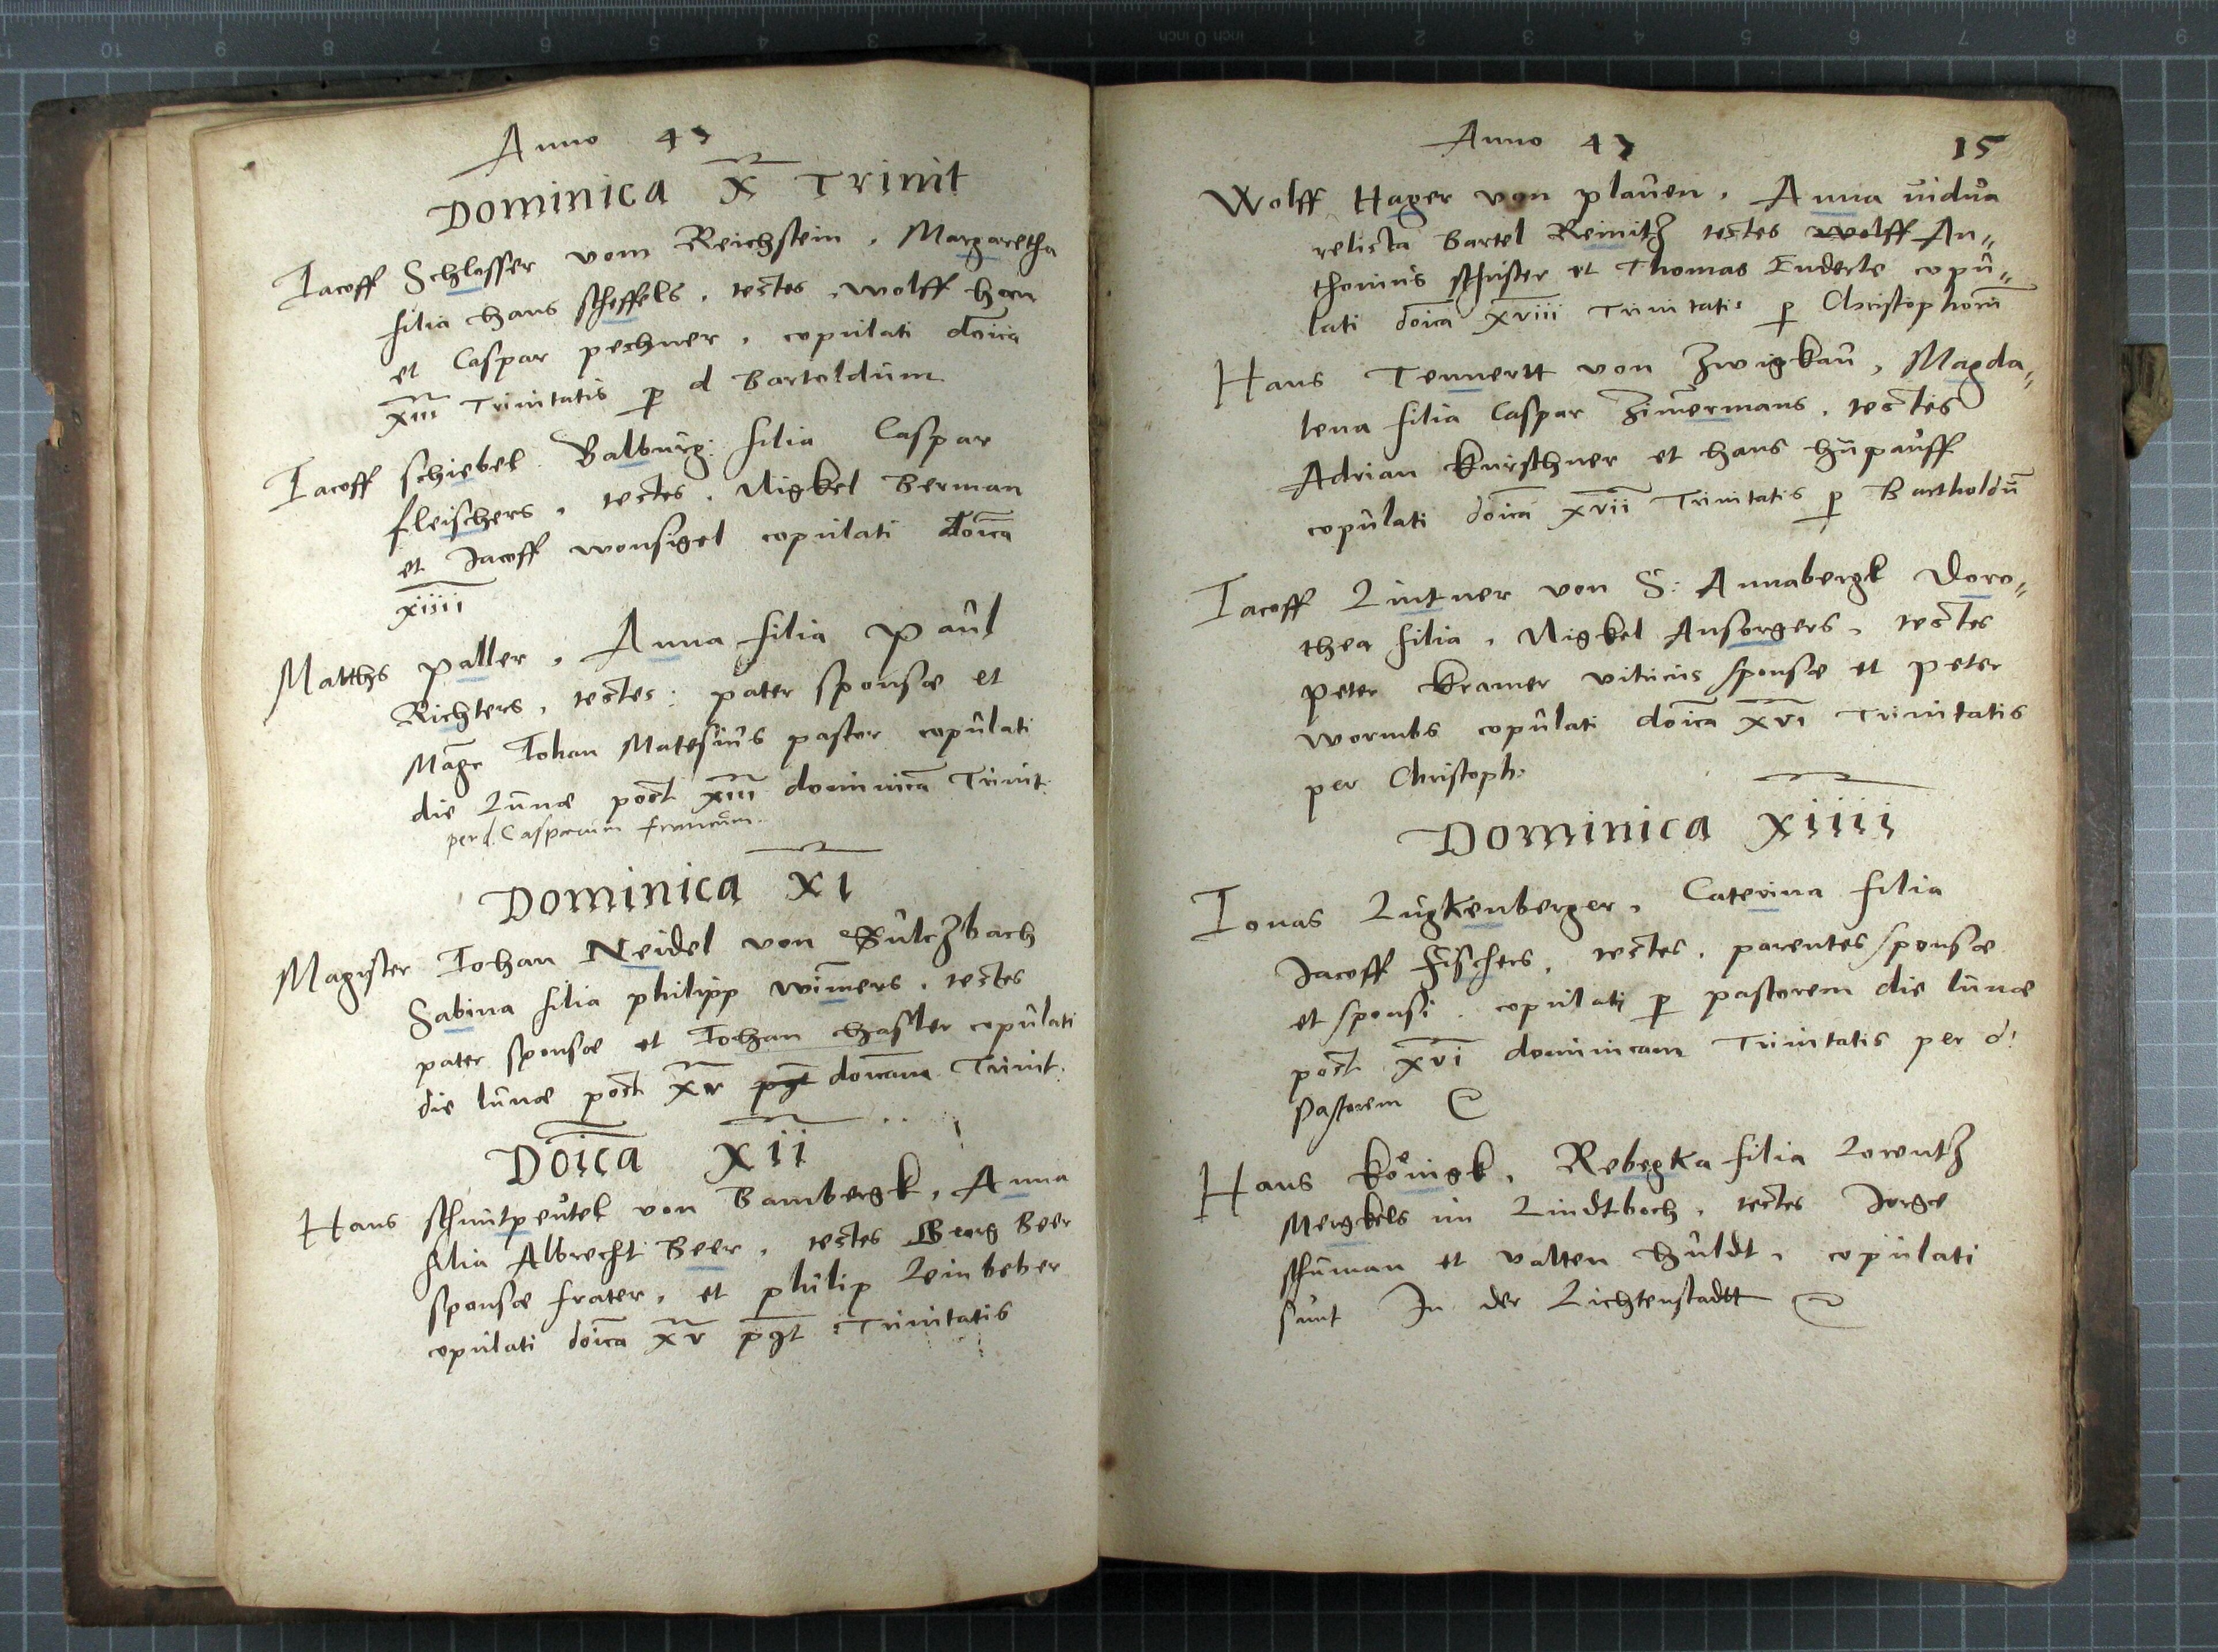 Anno 43
Dominica X Trinit
Jacoff Schlosser vom Reichstein, Margaretha
filia hans scheffels, testes, wolff han
et Caspar pechner, copulati doica
XIII Trinitatis p d Bartoldum
Jacoff schiebel Balburg: filia Caspar
fleischers, testes, Nigkel Berman
et Jacoff wonsigel copulati doica
xiiii
Matths paller, Anna filia Paul
Richters, testes: pater sponsæ et
Magr Johan Matesius pastor copulati
die Lunæ post XIII dominica Trinit:
per d. Casparum francum.
Dominica XI
Magister Johan Neidel von Sulczbach
Sabina filia philipp wimers, testes
pater sponsæ et Johan hasler copulati
die lunæ post XV doicam Trinit:
Doica Xii
Hans schmitpeutel von Bambergk, Anna
filia Albrecht Beer, testes Georg Beer
sponsæ frater, et philip Leinbeber
copulati doica XV pt Trinitatis
Anno 43 15
Wolff Hager von plauen, Anna uidua
relicta Bartel Reinitz testes wolff An„
thonius schuster et Thomas Enderle copu„
lati doica XVIII Trinitatis p Christophorum
Hans Tennertt von Zwigkau, Magda„
lena filia Caspar Zimermans, testes
Adrian kurschner et hans hupauff
copulati doica xvii Trinitatis p Bartholdu
Jacoff Lintner von S: Annabergk Doro„
thea filia, Nigkel Ansorgers, testes
peter kramer vitricus sponsæ et peter
wormbs copulati doica XVI Trinitatis
per Christoph:
Dominica Xiiii
Jonas Lugkenberger, Caterina filia
Jacoff fischers, testes, parentes sponsæ
et sponsi, copulati p pastorem die lunæ
post XVI dominicam Trinitatis per d:
pastorem
Hans königk, Rebegka filia Lorentz
Mergkels im Lindtboch, testes Jorge
schuman et valten huldt, copulati
sunt In der Lichtenstadtt